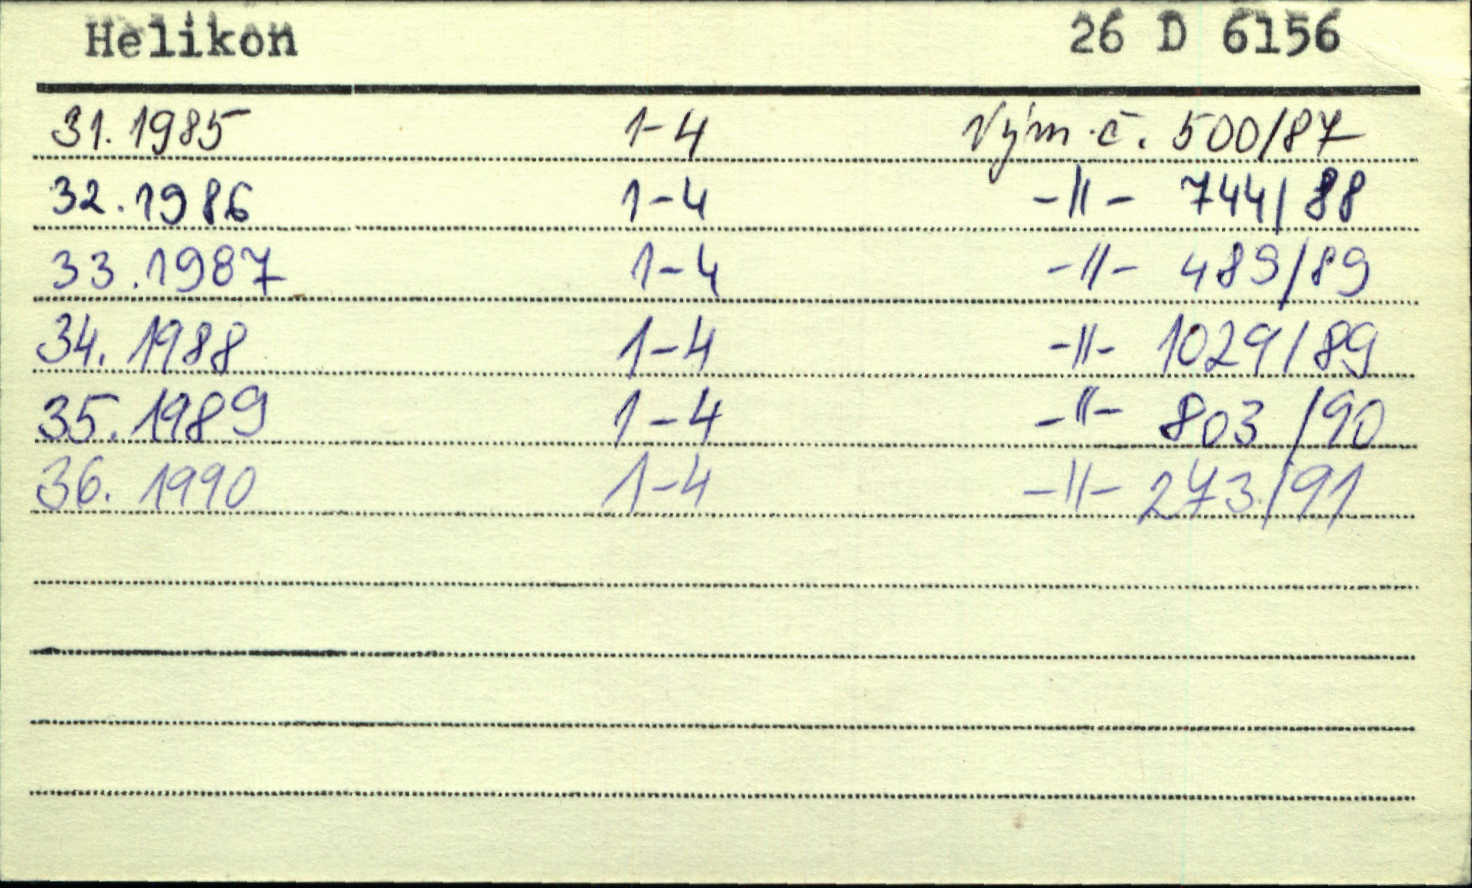 Helikon 26 D 6156
31.1985 1-4 Vým.č. 500/87
32.1986 1-4 -||- 744/88
33.1987 1-4 -||- 489/89
34.1988 1-4 -||- 1029/89
35.1989 1-4 -||- 803/90
36.1990 1-4 -||- 273/91